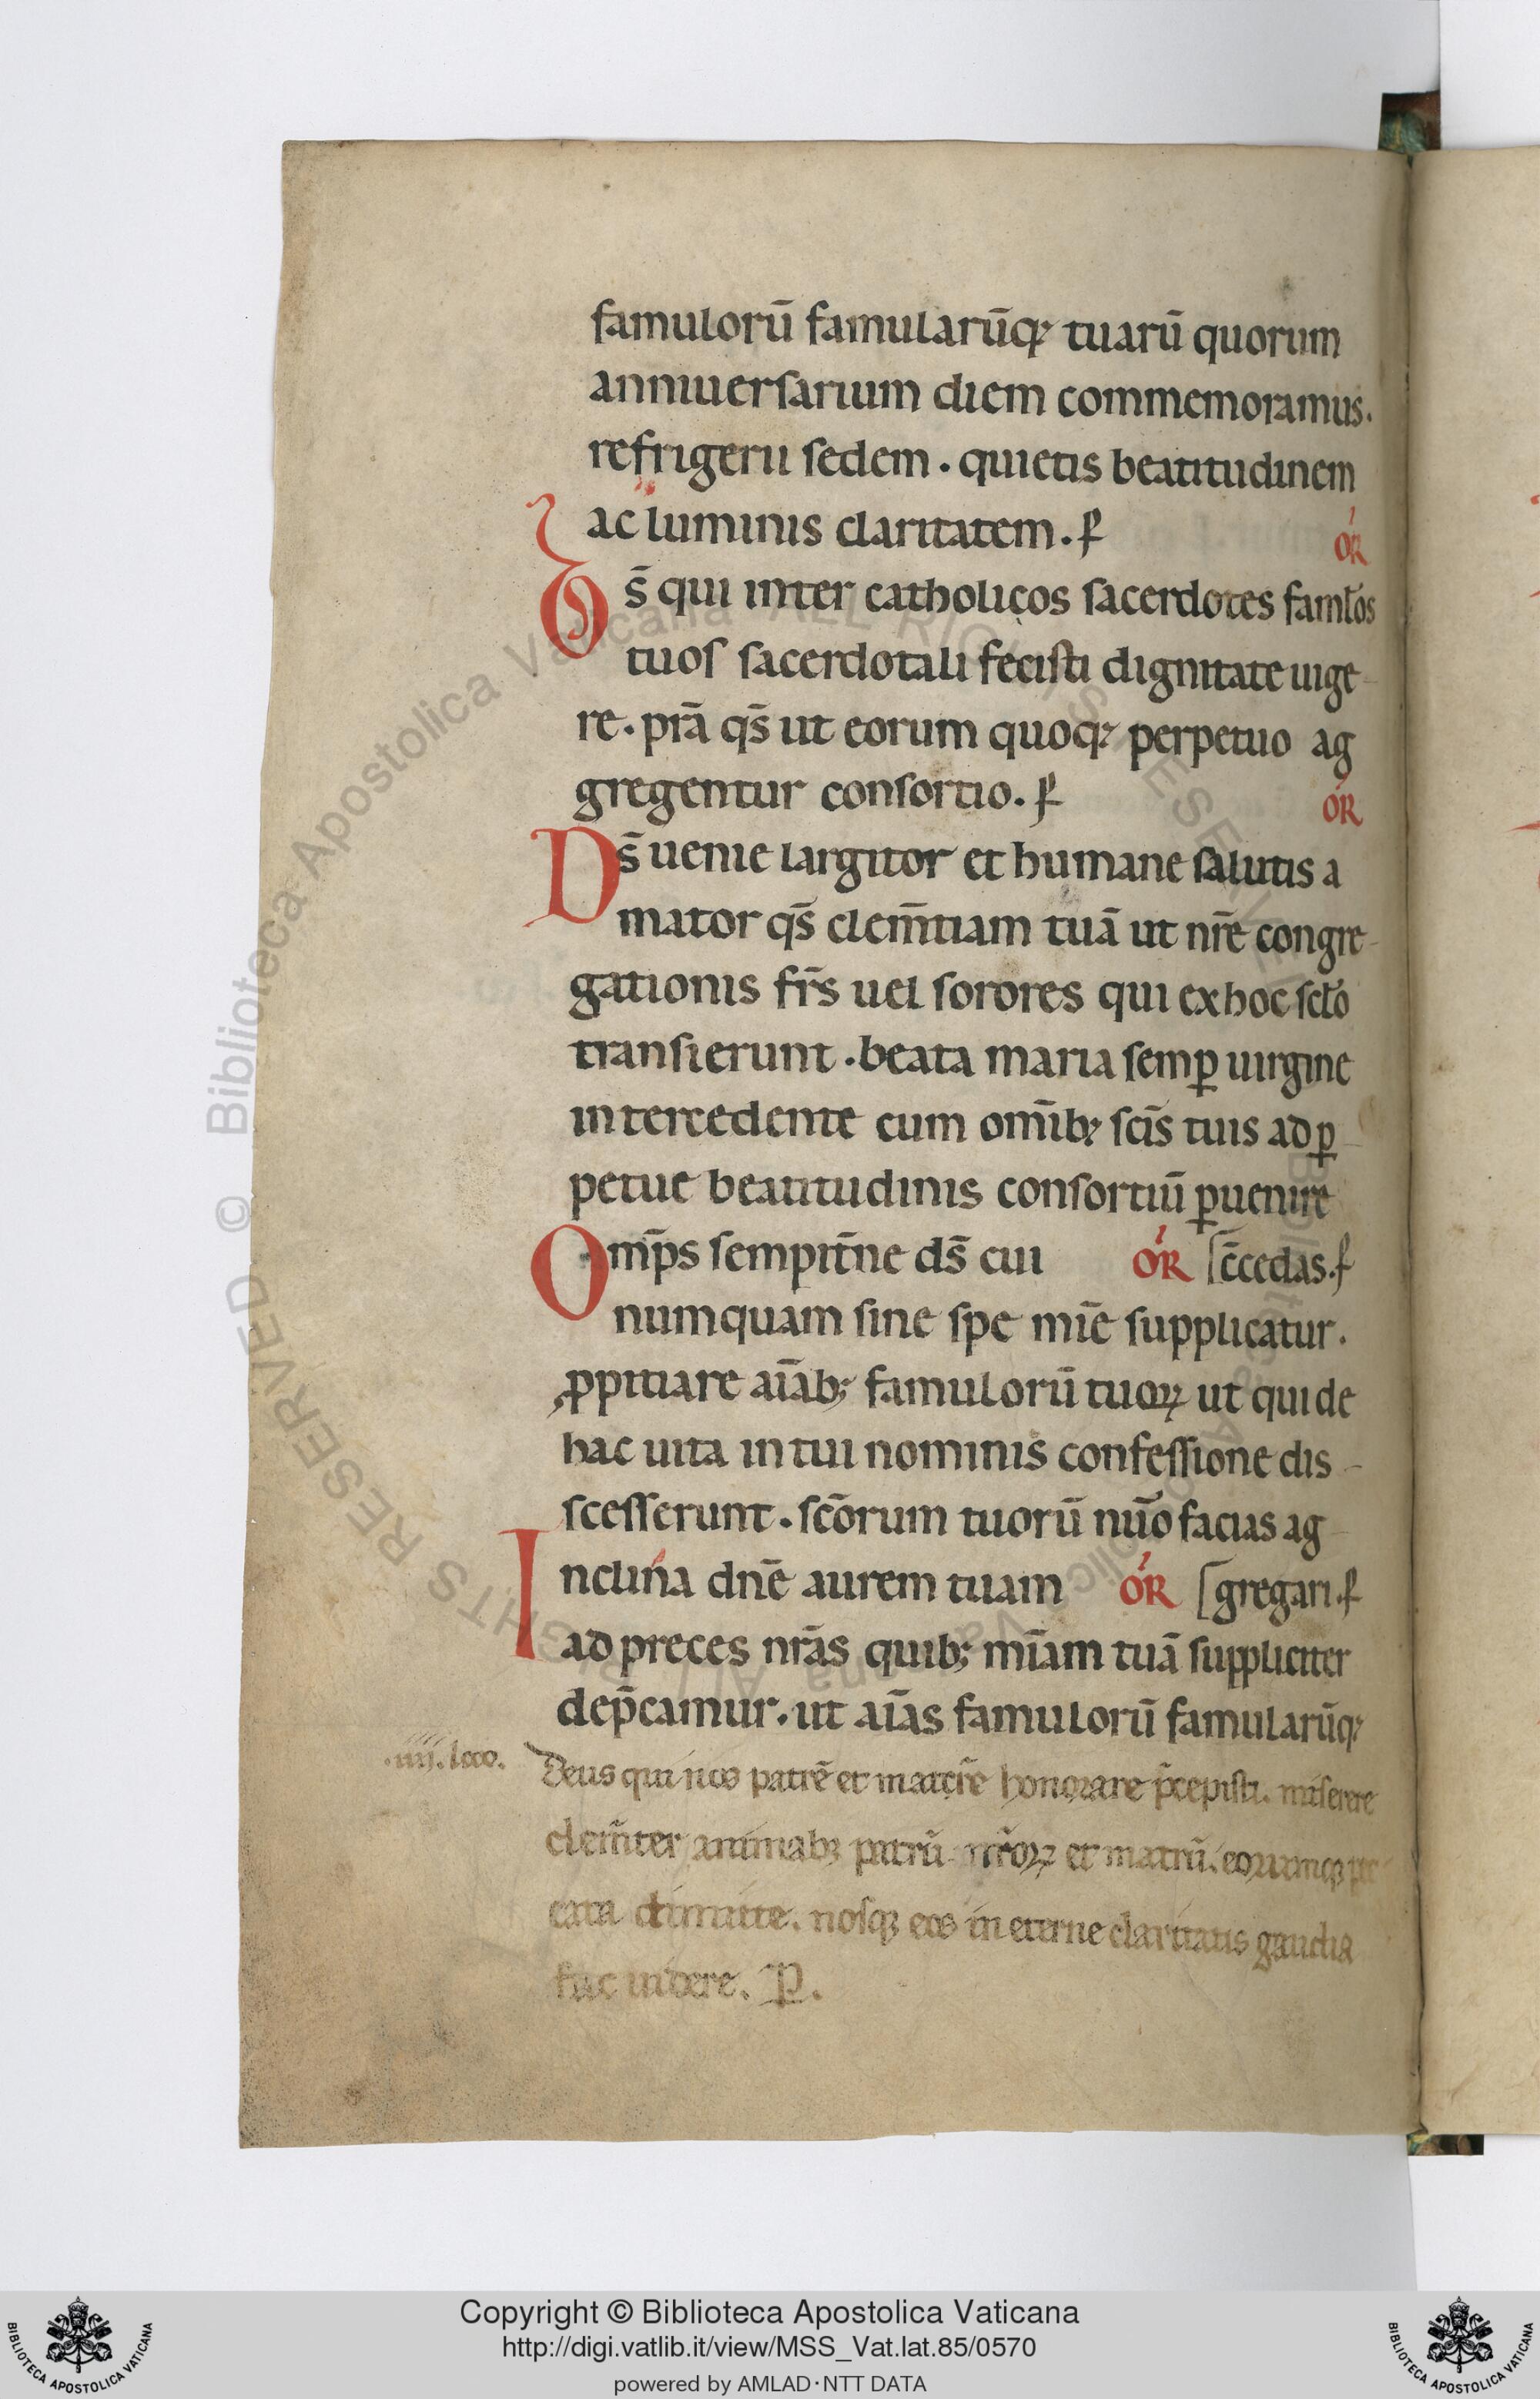 famulorū famularūq; tuarū quorum
anniuersarium diem commemoramus.
refrigerii sedem. quietis beatitudinem
ac luminis claritatem. P OR
Ds̄ qui inter catholicos sacerdotes famłos
tuos sacerdotali fecisti dignitate uige-
re. prā qs̄ ut eorum quoq; perpetuo ag
gregentur consortio. P OR
Ds̄ uenie largitor et humane salutis a
mator qs̄ clem̄tiam tuā ut nrē congre-
gationis frs̄ uel sorores qui ex hoc scło
transierunt. beata maria semꝑ uirgine
intercedente cum omīb; scīs tuis ad ꝑ-
petue beatitudinis consortiū ꝑuenire
Omp̄s sempitn̄e ds̄ cui OR [c̄cedas. P
numquam sine spe mīe supplicatur.
ꝓpitiare aīab; famulorū tuoꝝ ut qui de
hac uita in tui nominis confessione dis-
scesserunt. scōrum tuorū nūo facias ag-
Inclina dnē aurem tuam OR [gregari. P
ad preces nrās quib; mīam tuā suppliciter
dep̄camur. ut aīas famulorū famularūq;
.iiij. loco. Deus qui nos patrē et matrē honorare p̄cepisti. miserere
clem̄ter animab; patrū nr̄oꝝ et matrū. eorumq; pec
cata dimitte. nosq; eos in eterne claritatis gaudia
fac uidere. P.
Copyright © Biblioteca Apostolica Vaticana
http://digi.vatlib.it/view/MSS_Vat.lat.85/0570
powered by AMLAD·NTT DATA
BIBLIOTECA APOSTOLICA VATICANA
BIBLIOTECA APOSTOLICA VATICANA
© Biblioteca Apostolica Vaticana ALL RIGHTS RESERVED